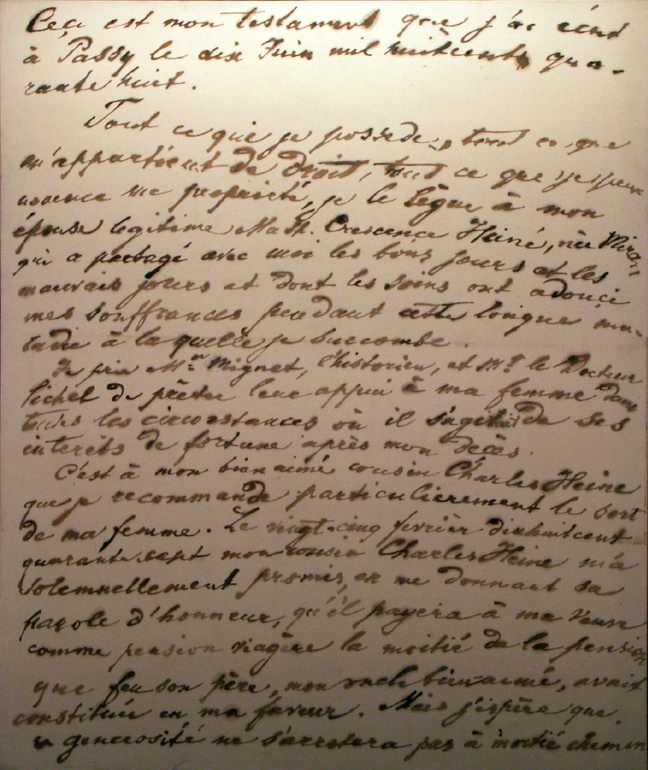 Ceci est mon testament que j'ai écrit
à Passy le dix Juin mil huitcent qua-
rante huit.
Tout ce que je possède, tout ce que
m'appartient de droit, tout ce que je
ma propriété, je le lègue à mon
épouse legitime Math. Crescence Heiné, née Mira,
qui a partagé avec moi les bons jours et les
mauvais jours et dont les soins ont adouci
mes souffrances pendant cette longue ma-
ladie à laquelle je succombe.
Je prie Mr. Mignet, l'historien, et Mr. le Docteur
Sichel de prêter leur appui à ma femme dans
toutes les circonstances où il s'agit de ses
interêts de fortune après mon décès.
C'est à mon bienaimé cousin Charles Heine
que je recommande particulièrement le sort
de ma femme. Le vingt-cinq fevrièr dixhuitcent
quarante-sept mon cousin Charles Heine m'a
solemnellement promis, en me donnant sa
parole d'honneur, qu'il payera à ma veuve
comme pension viagère la moitié de la pension
que feu son père, mon oncle bienaimé, avait
constituée en ma faveur. Mais j'espère que
sa generosité ne s'arretera pas à moitié chemin